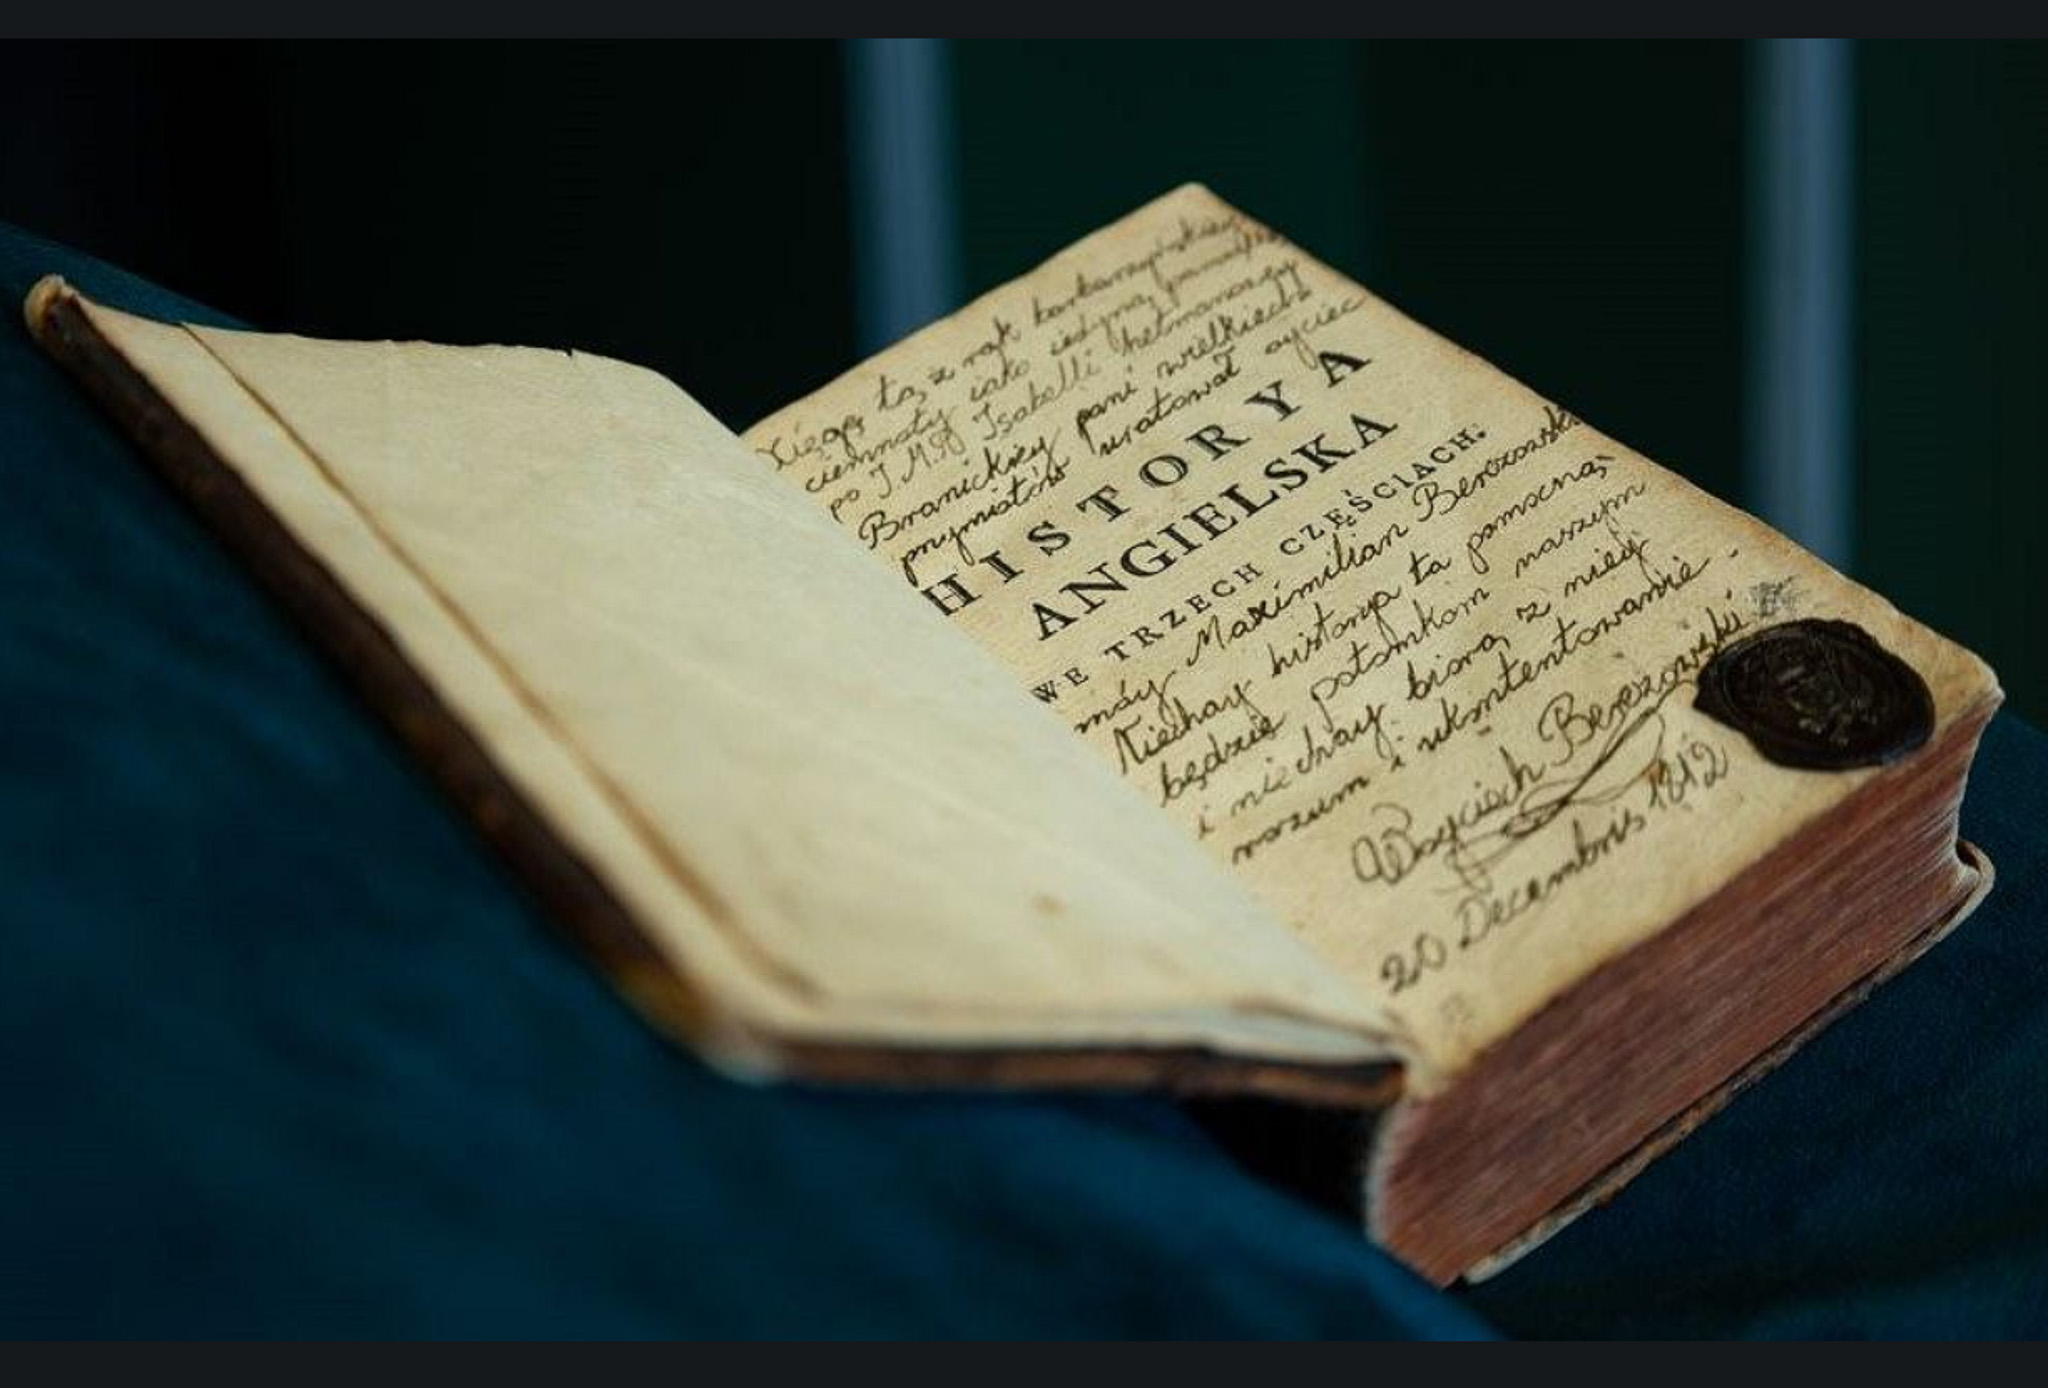 Xięgę tą z rąk barbarzyńskiey
ciemnoty iako iedyną pamiątkę
po J. M. Isabelli hetmanowey
Branickiey pani wielkiech
przymiotów uratował oyciec
HISTORYA
ANGIELSKA
WE TRZECH CZĘŚCIACH.
móy Maximilian Berezowski
Niechay historya ta pomocną
będzie potomkom naszym
i niechay biorą z niey
rozum i ukontentowanie.
Woyciech Berezowski
20 Decembris 1812